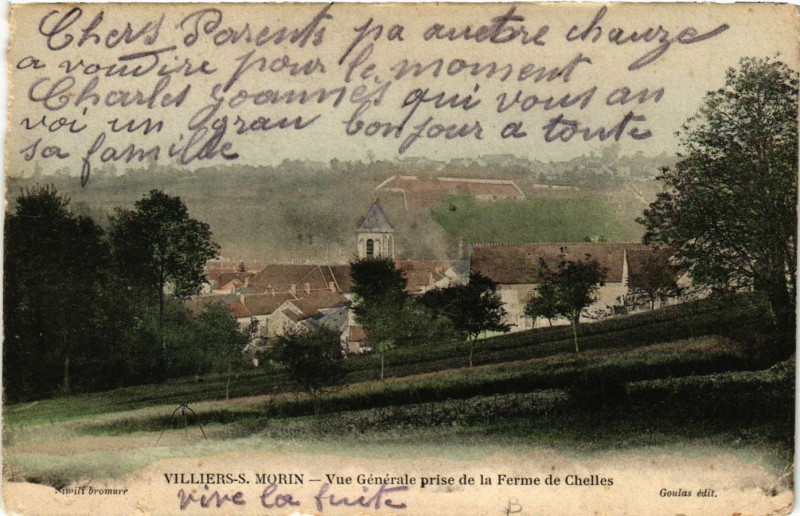 Chers Parents pa auctre chauze
a voudire pour le momsent
Charles Joannes qui vous an
voi un gran bonjour a toute
sa famille
VILLIERS-S. MORIN — Vue Générale prise de la Ferme de Chelles
Simili bromure
vive la fuite
Goulas édit.
B